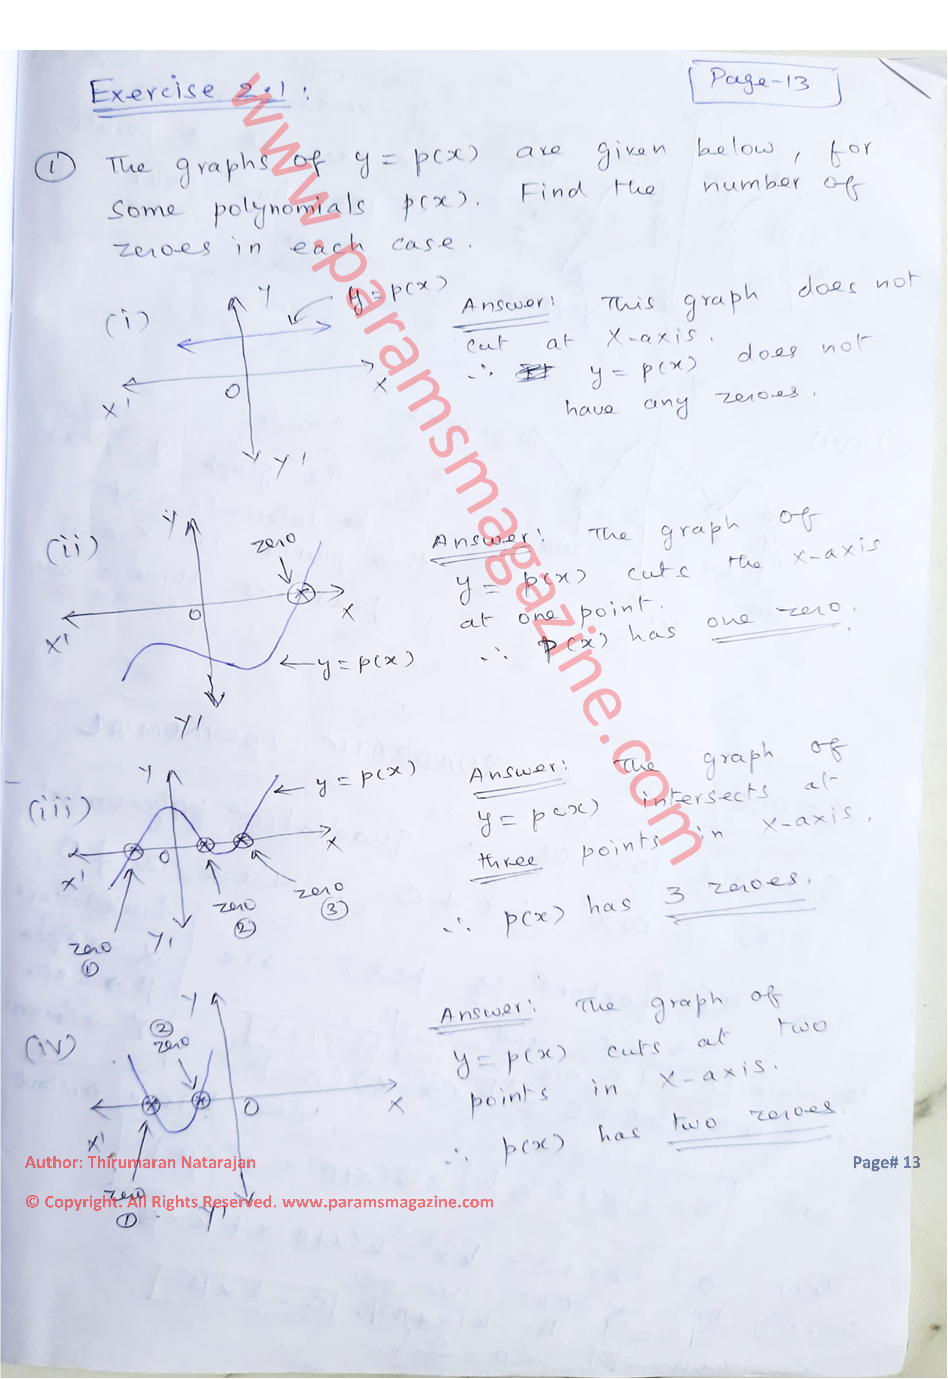 Exercise 2.1:
Page-13
① The graphs of y = p(x) are given below, for
some polynomials p(x). Find the number of
zeroes in each case.
(i)
Y
y = p(x)
X
O
X'
Y'
Answer: This graph does not
cut at X-axis.
∴ y = p(x) does not
have any zeroes.
(ii)
Y
zero
X
O
X'
y = p(x)
Y'
Answer: The graph of
y = p(x) cuts the x-axis
at one point.
∴ P(x) has one zero.
(iii)
Y
y = p(x)
X
O
X'
zero
③
zero
②
Y'
zero
①
Answer: The graph of
y = p(x) intersects at
three points in X-axis.
∴ p(x) has 3 zeroes.
(iv)
Y
②
zero
O
X
X'
zero
①
Y'
Answer: The graph of
y = p(x) cuts at two
points in X-axis.
∴ p(x) has two zeroes.
www.paramsmagazine.com
Author: Thirumaran Natarajan
Page# 13
© Copyright. All Rights Reserved. www.paramsmagazine.com